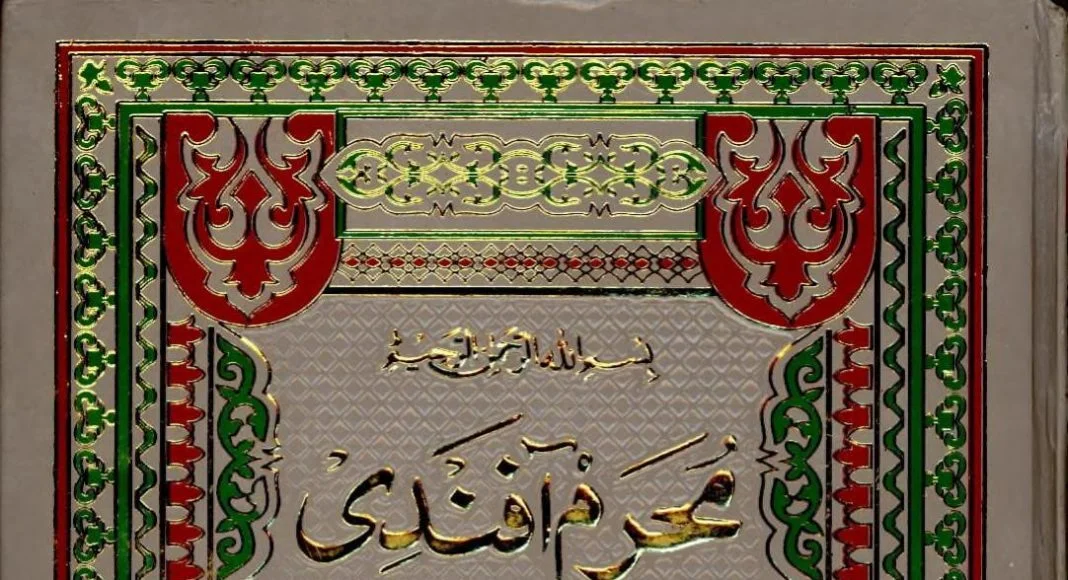 بسم الله الرحمن الرحيم
محرم آفندی